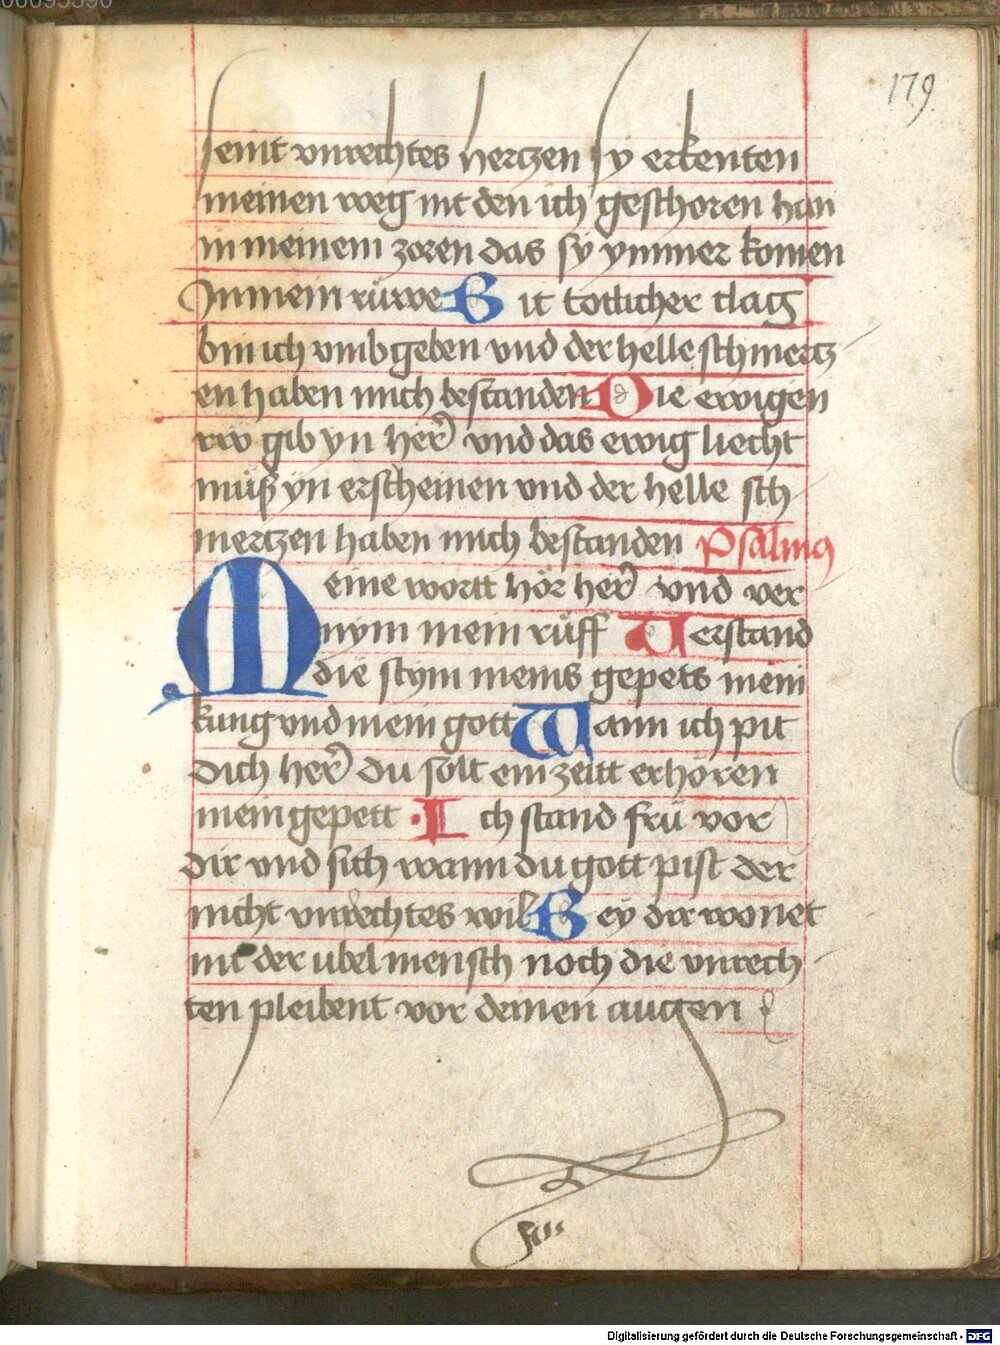 00095390
179
seint vnrechtes hertzen sy erkenten
meinen weg nit den ich geschoren han
in meinem zoren das sÿ ymmer komen
In mein rüwe Bit totlicher clag
bin ich vmb geben vnd der helle schmertz
en haben mich bestanden Die ewigen
rw gib yn her vnd das ewig liecht
müß yn erscheinen vnd der helle sch
mertzen haben mich bestanden Psalmus
Meine wortt hör her vnd ver
nym mein rüff Verstand
die stym meins gepets mein
kung vnd mein gott Wann ich pit
dich her du solt ein zeitt erhören
mein gepett · Ich stand frü vor
dir vnd sich wann du gott pist der
nicht vnrechtes wil Bey dir wonet
nit der ubel mensch noch die vnrech
ten pleibent vor deinen augen
Digitalisierung gefördert durch die Deutsche Forschungsgemeinschaft - DFG